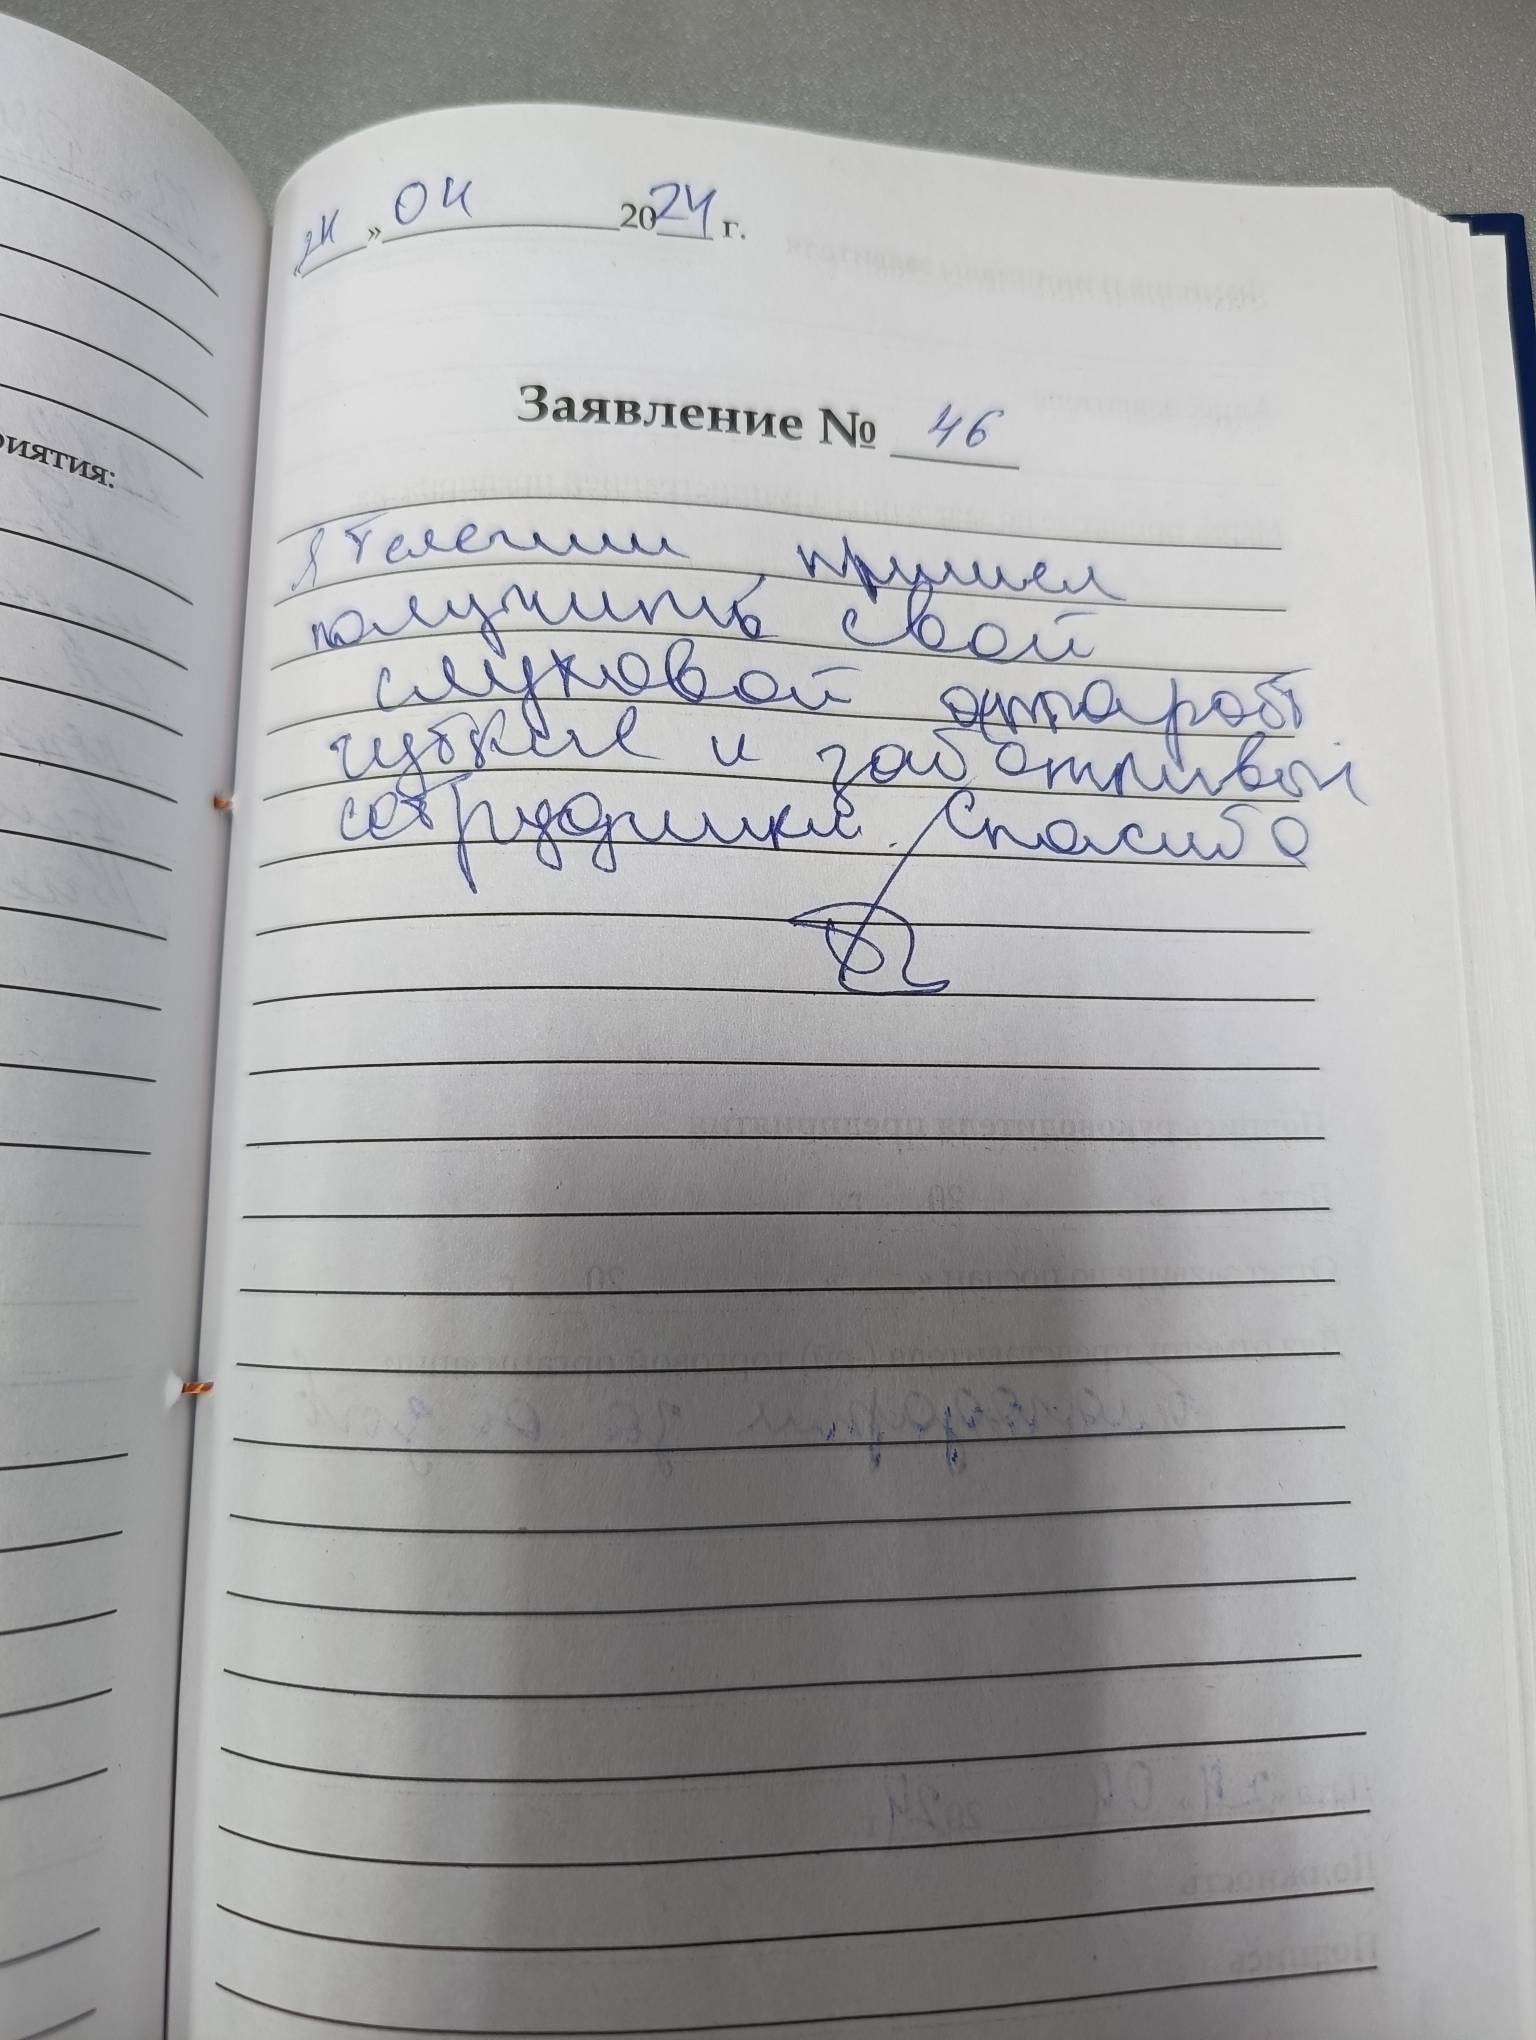 риятия:
«24» 04 2024 г.
Заявление № 46
Я пришел
получить свой
слуховой аппарат
чуткие и заботливые
сотрудники. Спасибо